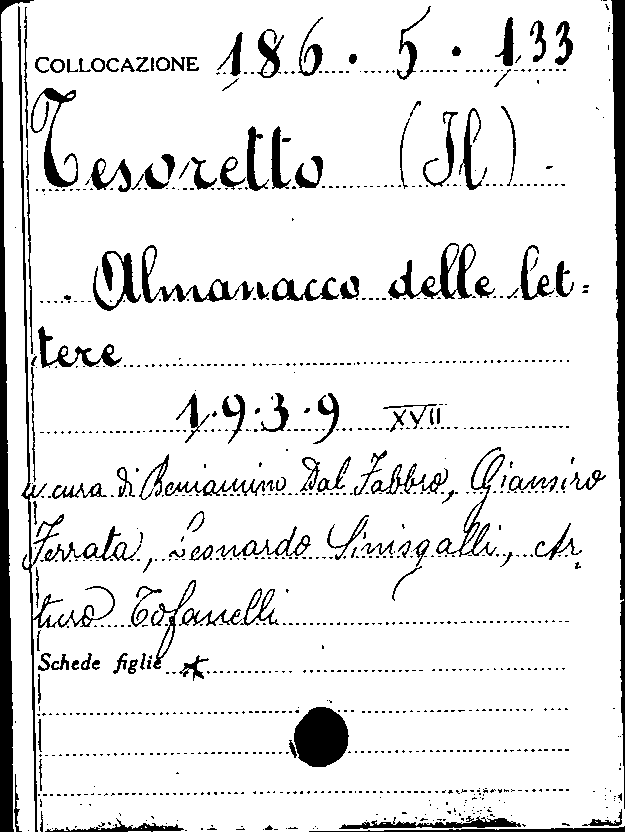 COLLOCAZIONE 186 . 5 . 133
Tesoretto (Il) .
. Almanacco delle let=
tere
1.9.3.9 XVII
a cura di Beniamino Dal Fabbro, Giansiro
Ferrata, Leonardo Sinisgalli, Ar
turo Tofanelli
Schede figlie *